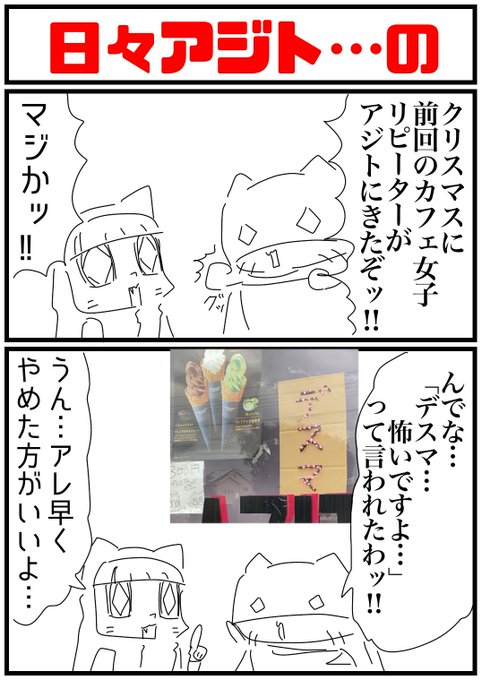 日々アジト…の
クリスマスに
前回のカフェ女子
リピーターが
アジトにきたぞッ!!
マジかッ!!
グッ
んでな…
「デスマ…
怖いですよ…」
って言われたわッ!!
デスマ
300円
うん…アレ早く
やめた方がいいよ…